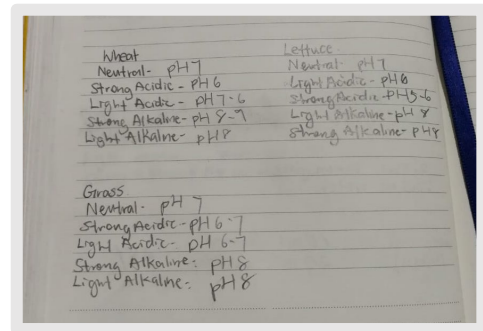 Wheat
Neutral- pH 7
Strong Acidic - pH 6
Light Acidic - pH 7-6
Strong Alkaline- pH 8-9
Light Alkaline- pH 8
Lettuce
Neutral- pH 7
Light Acidic- pH 6
Strong Acidic- pH 5-6
Light Alkaline- pH 8
Strong Alkaline- pH 8
Grass
Neutral- pH 7
Strong Acidic- pH 6-7
Light Acidic- pH 6-7
Strong Alkaline: pH 8
Light Alkaline: pH 8